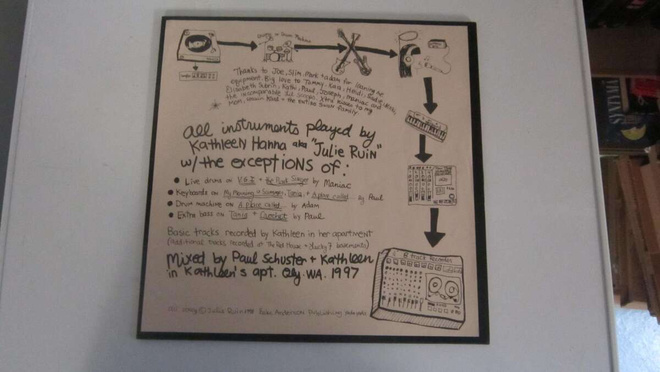 Drum Machine
Thanks to Joe, Slim, Mark + Adam for loaning me
equipment. Big love to Tammy, Kara, Heidi,
Elisabeth Subrin, Kathi, Paul, Joseph, Maniac and
the
Mom. + the entire family.
all instruments played by
Kathleen Hanna aka "Julie Ruin"
w/the exceptions of:
Live drums on V.G.I. + the Punk Singer by Maniac
Keyboards on My Morning is Summer, Tania, + A place called... by Paul
Drum machine on A Place Called... by Adam
Extra bass on Tania + Crochet by Paul
Basic tracks recorded by Kathleen in her apartment
(additional tracks recorded at The Red House + Lucky 7 basements)
Mixed by Paul Schuster + Kathleen
in Kathleen's apt. Oly. WA. 1997
8 track Recorder
© Julie Ruin